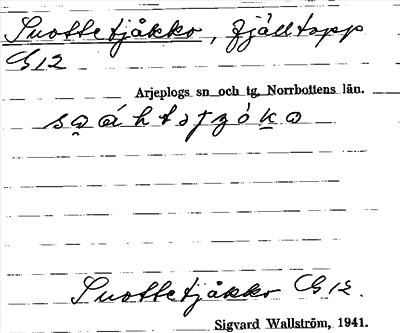 Suottetjåkko, fjälltopp
G12
Arjeplogs sn och tg, Norrbottens län.
Suottetjåkko G12.
Sigvard Wallström, 1941.